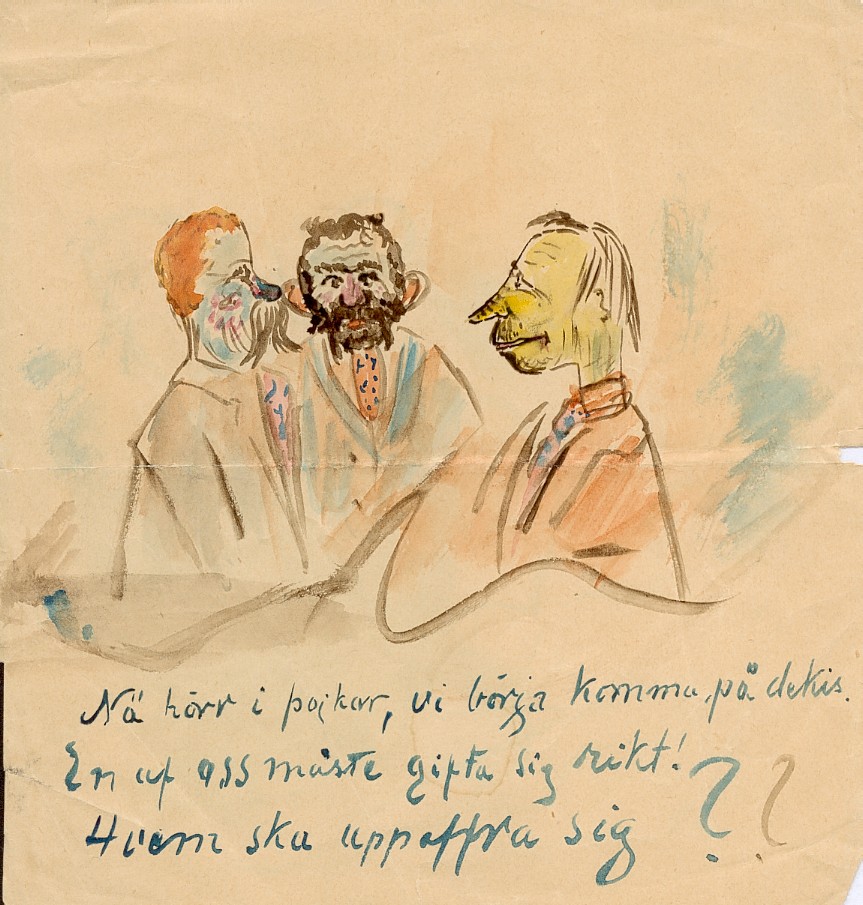 Nå hörr i pojkar, vi börja komma på dekis.
En af oss måste gifta sig rikt!
Hvem ska uppoffra sig ??